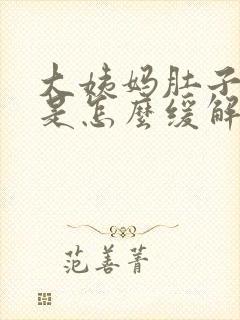 大姨妈肚子
是怎麽缓解
范善菁